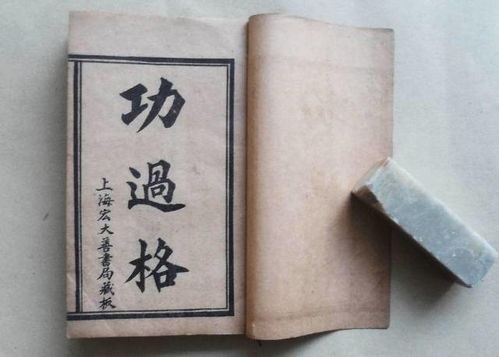 功過格
上海宏大善書局藏板